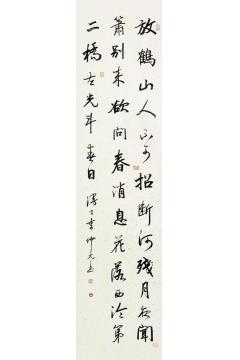 放鶴山人不可招斷河殘月夜聞
簫別来欲問春消息花落西泠第
二橋左光斗春日